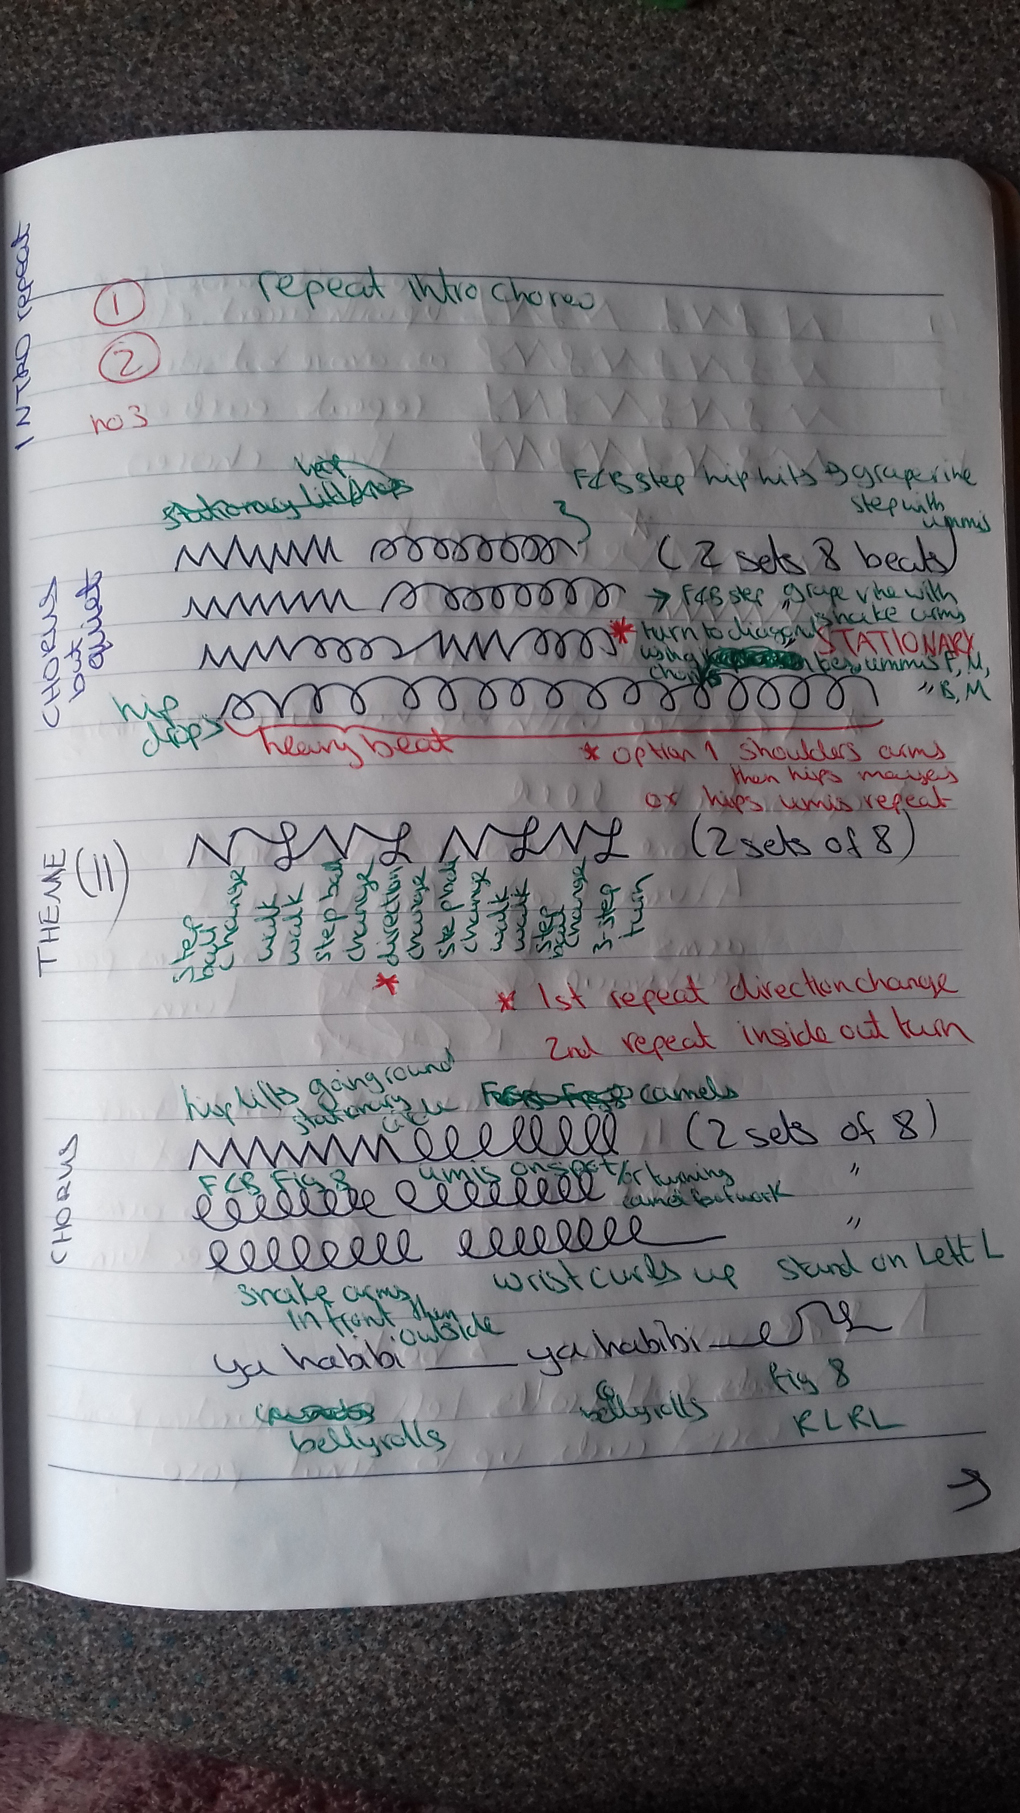 INTRO repeat
1 repeat intro choreo
2
no 3
F&B step hip hits & grapevine
step with
ummis
(2 sets 8 beats)
CHORUS
but
quiet
→ F&B step, grapevine with
snake arms
* turn to diagonal STATIONARY
using ummis F, M,
" B, M
hip
drops
heavy beat
* option 1 shoulders arms
then hips mayas
or hips umis repeat
THEME
(II)
(2 sets of 8)
step ball change walk walk step ball change direction change step ball change walk walk step ball change 3-step turn
*
* 1st repeat direction change
2nd repeat inside out turn
hip lifts going round
stationary circle camels
CHORUS
(2 sets of 8)
FCB Fig 8 umis on spot /or turning "
camel footwork
"
snake arms wrist curls up stand on Left L
in front then
outside
ya habibi ya habibi
bellyrolls bellyrolls Fig 8
RLRL
→